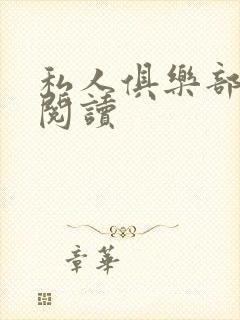 私人俱樂部
閱讀
章華